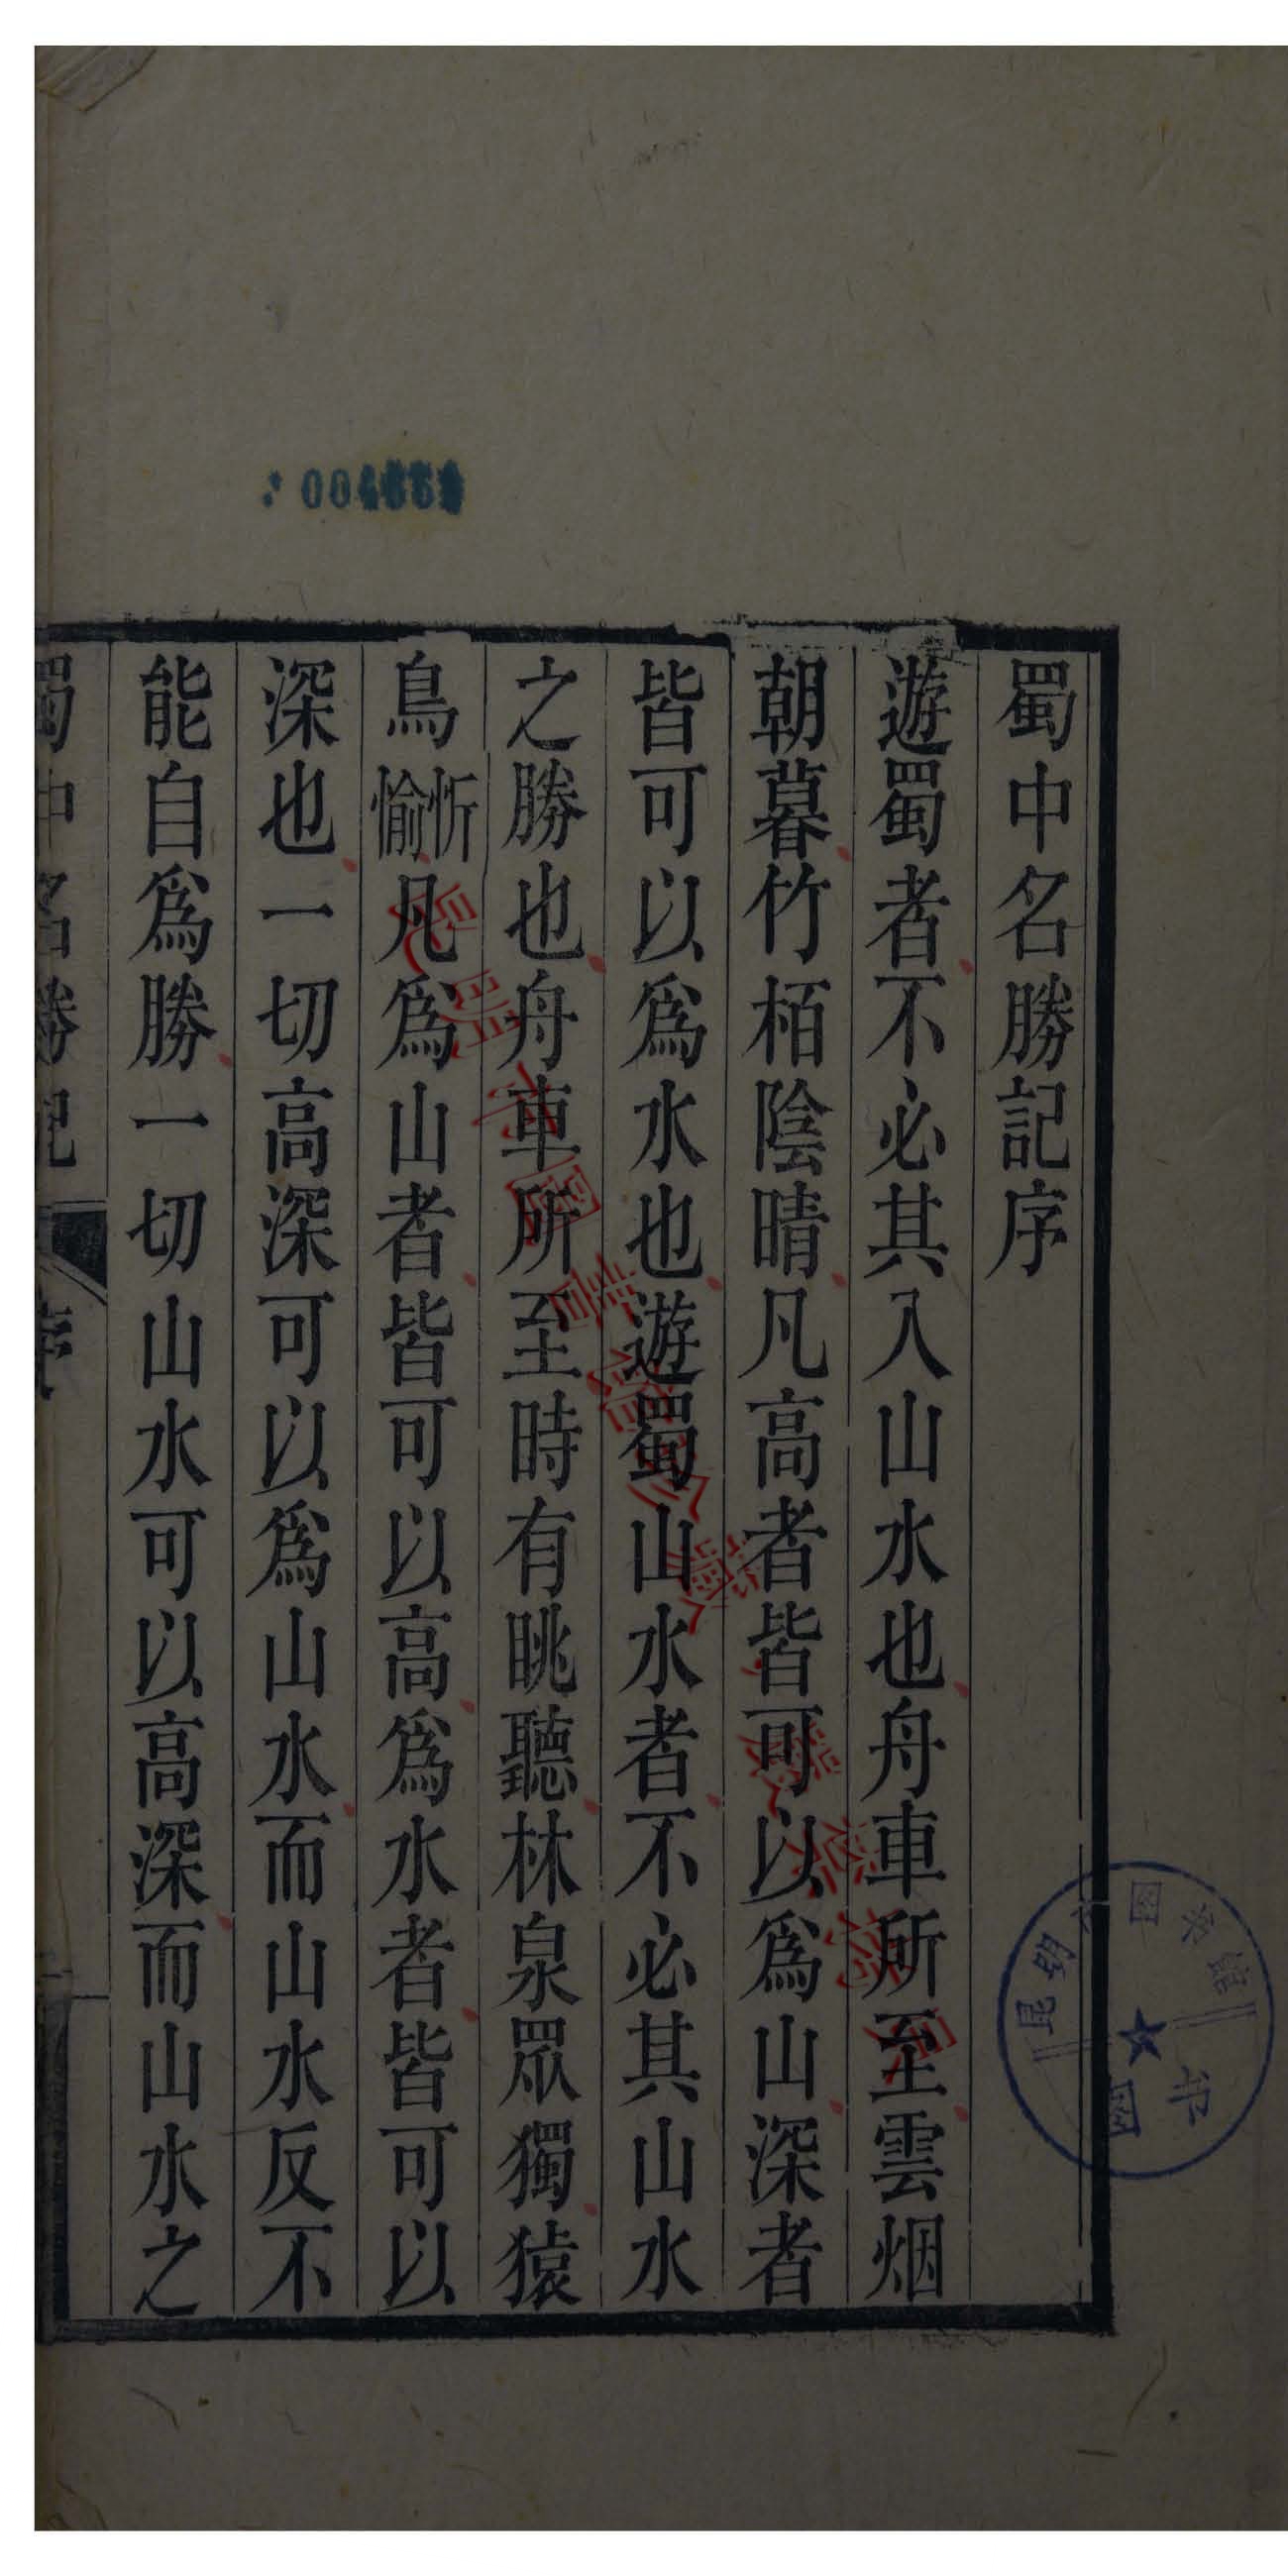 蜀中名勝記序
遊蜀者不必其入山水也舟車所至雲烟
朝暮竹栢陰晴凡高者皆可以爲山深者
皆可以爲水也遊蜀山水者不必其山水
之勝也舟車所至時有眺聽林泉眾獨猿
鳥忻愉凡爲山者皆可以高爲水者皆可以
深也一切高深可以爲山水而山水反不
能自爲勝一切山水可以高深而山水之
蜀中名勝記
序
昆明
图书馆